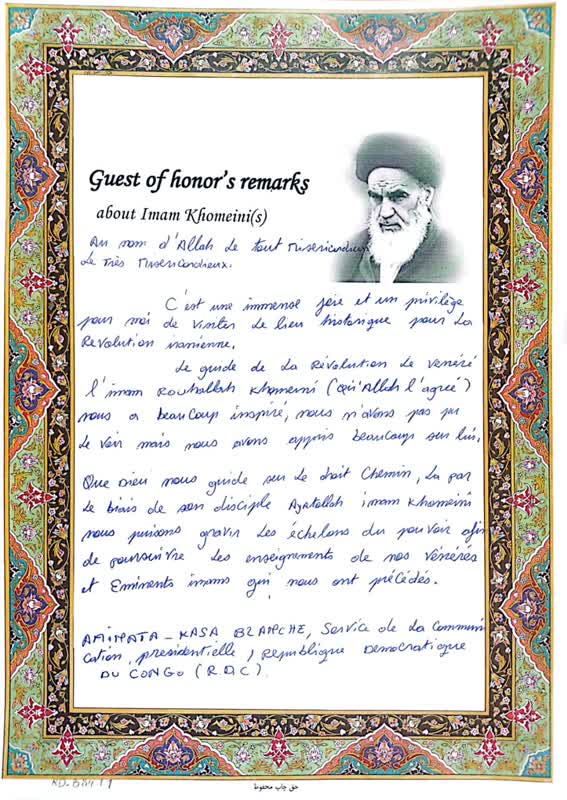 Guest of honor's remarks
about Imam Khomeini(s)
Au nom d'Allah le tout Miséricordieux
le Très Miséricordieux.
C'est une immense joie et un privilège
pour moi de visiter le lieu historique pour la
Révolution iranienne.
Le guide de la Révolution le vénéré
l'imam Rouhallah Khomeini (Qu'Allah l'agreé)
nous a beaucoup inspiré, nous n'avons pas pu
le voir mais nous avons appris beaucoup sur lui.
Que Dieu nous guide sur le droit Chemin, la par
le biais de son disciple Ayatollah imam Khomeini
nous puisons gravir les échelons du pouvoir afin
de poursuivre les enseignements de nos Vénérés
et Eminents imams qui nous ont précédés.
KASA BLANCHE, Service de la Communi
cation, présidentielle, République Democratique
DU CONGO (R.D.C)
حق چاپ محفوظ